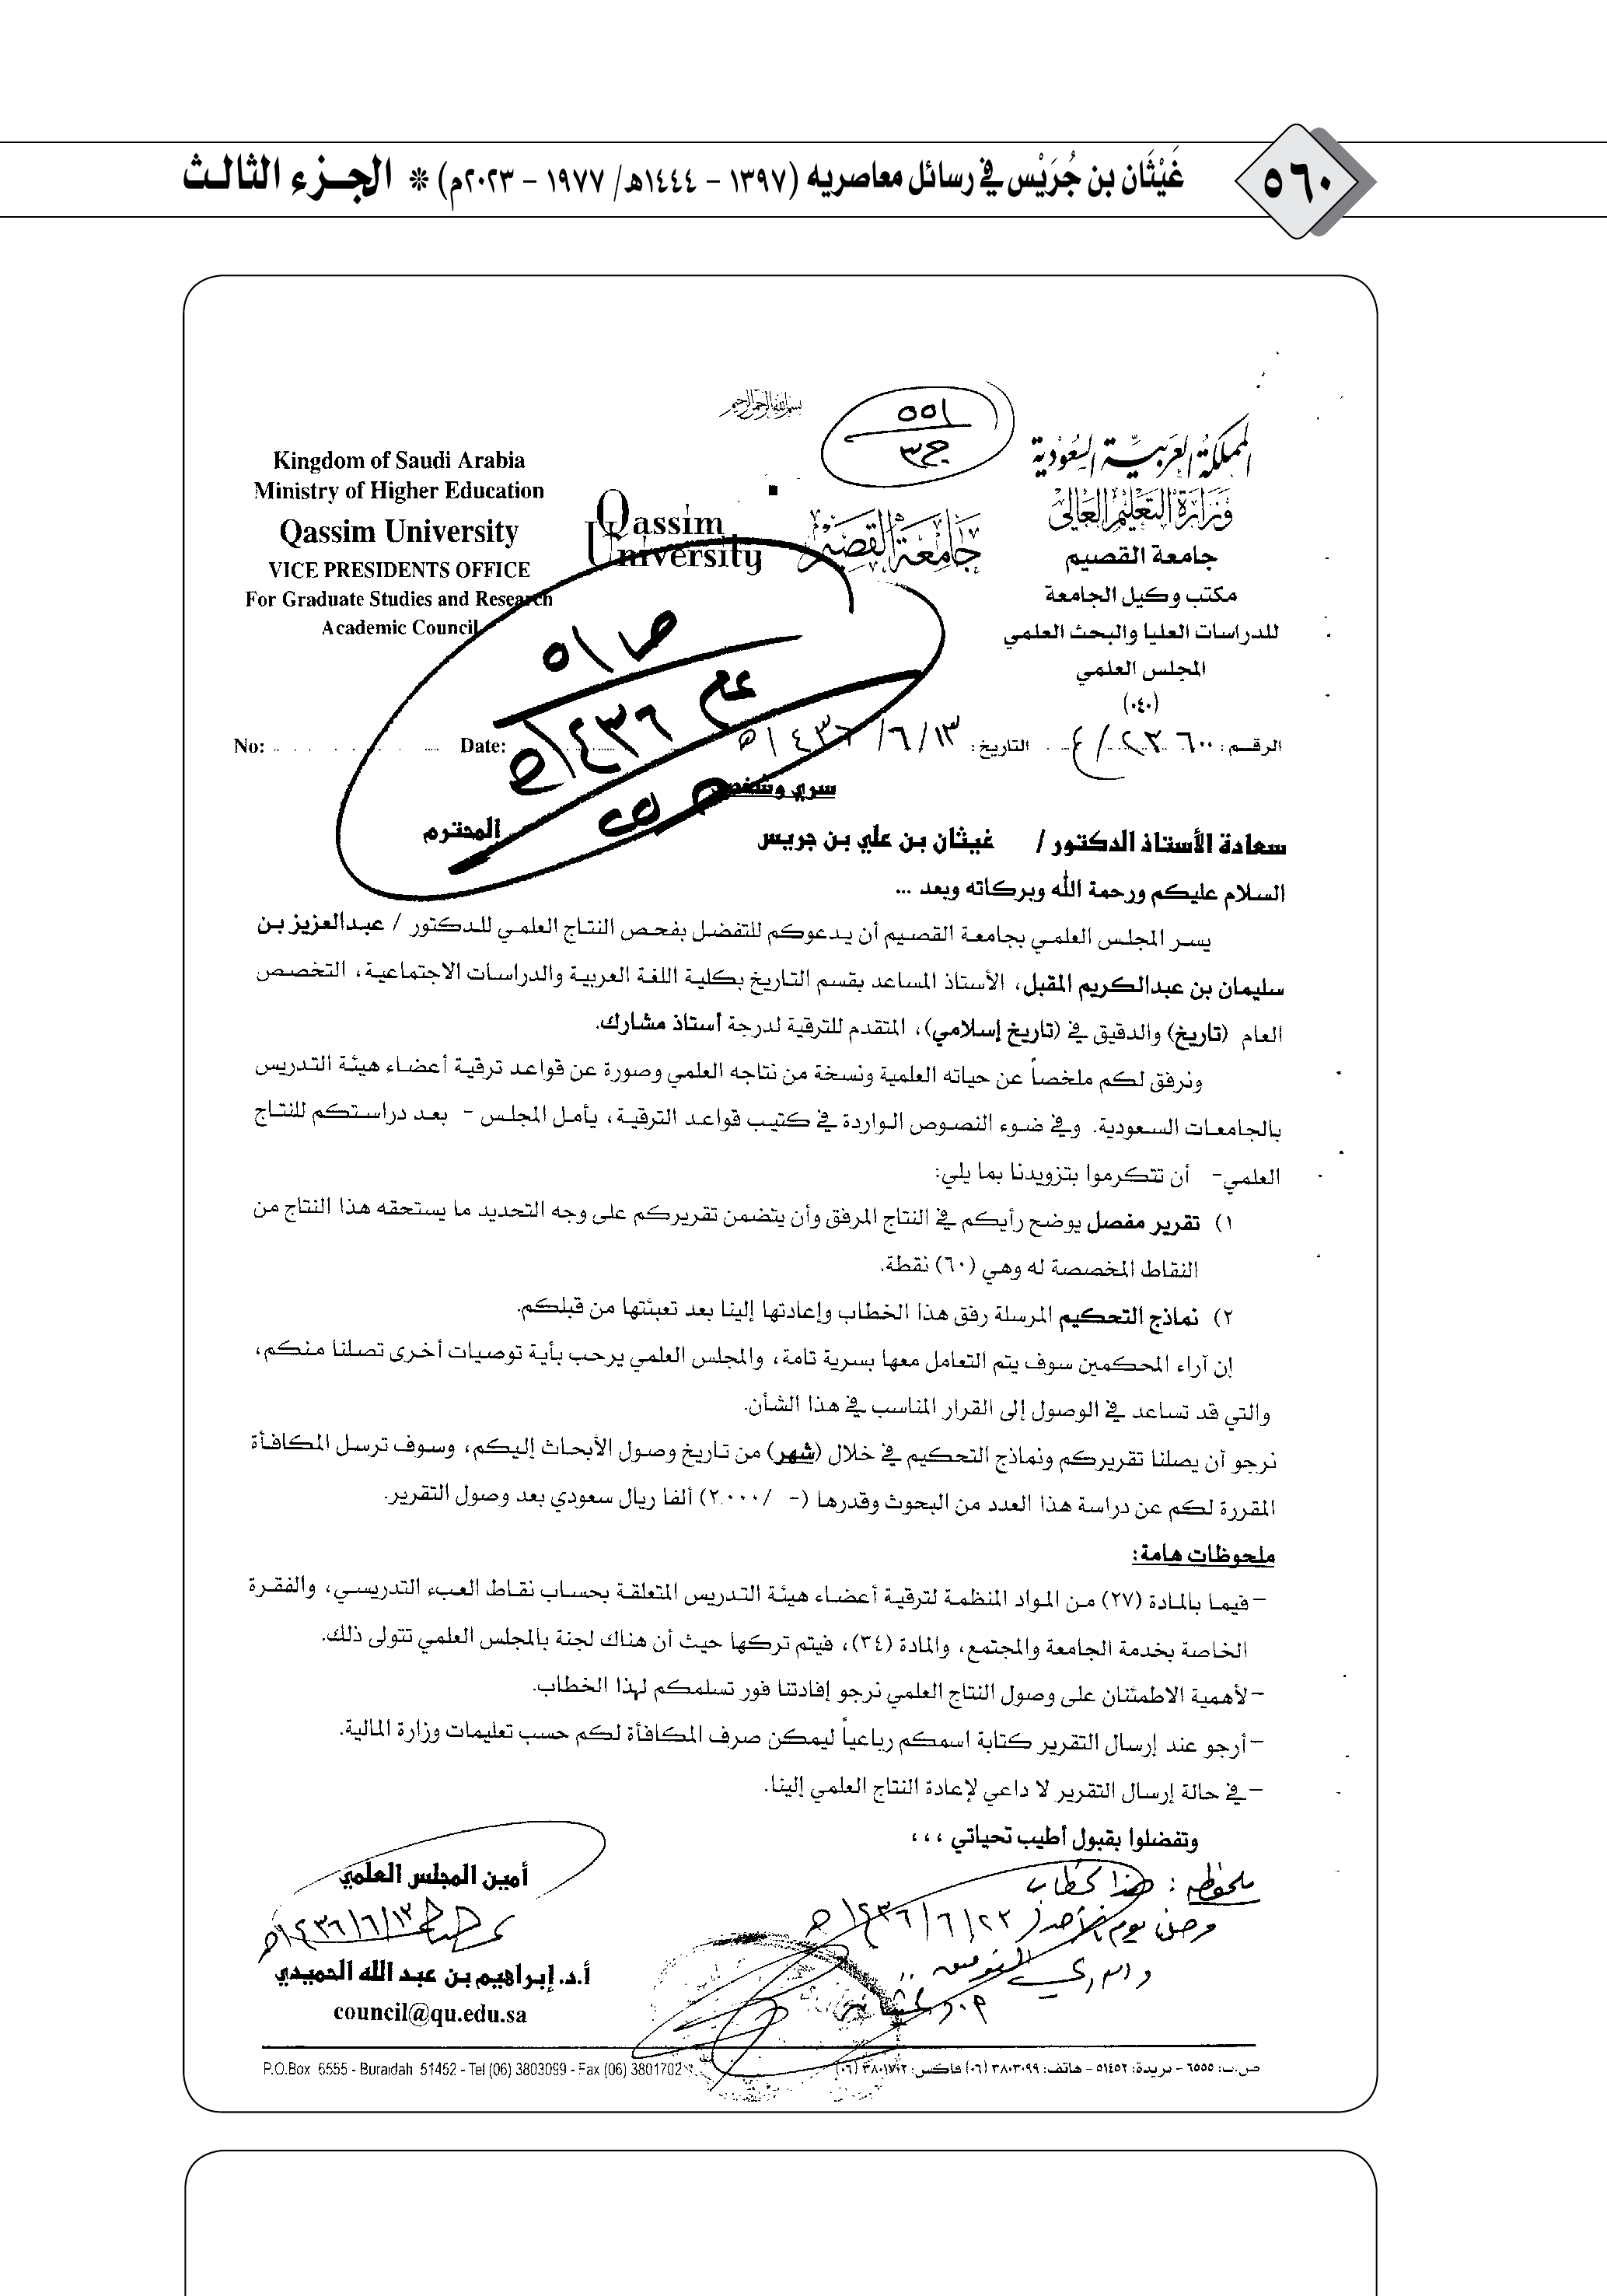 ٥٦٠
غَيْثَان بن جُرَيْس في رسائل معاصريه (١٣٩٧ - ١٤٤٤هـ/ ١٩٧٧ - ٢٠٢٣م) * الجـزء الثالـث
بسم الله الرحمن الرحيم
٥٥١
ج٣
المملكة العربية السعودية
وزارة التعليم العالي
جامعة القصيم
مكتب وكيل الجامعة
للدراسات العليا والبحث العلمي
المجلس العلمي
(٠٤٠)
جامعة القصيم
Qassim
University
Kingdom of Saudi Arabia
Ministry of Higher Education
Qassim University
VICE PRESIDENTS OFFICE
For Graduate Studies and Research
Academic Council
ص/٥١
عام
١٤٣٦هـ
الرقـم:
التاريخ: ١٣/٦/١٤٣٦هـ
Date:
No:
سري
سعادة الأستاذ الدكتور / غيثان بن علي بن جريس المحترم
السلام عليكم ورحمة الله وبركاته وبعد ...
يسر المجلس العلمي بجامعة القصيم أن يدعوكم للتفضل بفحص النتاج العلمي للدكتور / عبدالعزيز بن
سليمان بن عبدالكريم المقبل، الأستاذ المساعد بقسم التاريخ بكلية اللغة العربية والدراسات الاجتماعية، التخصص
العام (تاريخ) والدقيق في (تاريخ إسلامي)، المتقدم للترقية لدرجة أستاذ مشارك.
ونرفق لكم ملخصاً عن حياته العلمية ونسخة من نتاجه العلمي وصورة عن قواعد ترقية أعضاء هيئة التدريس
بالجامعات السعودية. وفي ضوء النصوص الواردة في كتيب قواعد الترقية، يأمل المجلس - بعد دراستكم للنتاج
العلمي- أن تتكرموا بتزويدنا بما يلي:
١) تقرير مفصل يوضح رأيكم في النتاج المرفق وأن يتضمن تقريركم على وجه التحديد ما يستحقه هذا النتاج من
النقاط المخصصة له وهي (٦٠) نقطة.
٢) نماذج التحكيم المرسلة رفق هذا الخطاب وإعادتها إلينا بعد تعبئتها من قبلكم.
إن آراء المحكمين سوف يتم التعامل معها بسرية تامة، والمجلس العلمي يرحب بأية توصيات أخرى تصلنا منكم،
والتي قد تساعد في الوصول إلى القرار المناسب في هذا الشأن.
نرجو أن يصلنا تقريركم ونماذج التحكيم في خلال (شهر) من تاريخ وصول الأبحاث إليكم، وسوف ترسل المكافأة
المقررة لكم عن دراسة هذا العدد من البحوث وقدرها (- /٢.٠٠٠) ألفا ريال سعودي بعد وصول التقرير.
ملحوظات هامة:
- فيما بالمادة (٢٧) من المواد المنظمة لترقية أعضاء هيئة التدريس المتعلقة بحساب نقاط العبء التدريسي، والفقرة
الخاصة بخدمة الجامعة والمجتمع، والمادة (٣٤)، فيتم تركها حيث أن هناك لجنة بالمجلس العلمي تتولى ذلك.
- لأهمية الاطمئنان على وصول النتاج العلمي نرجو إفادتنا فور تسلمكم لهذا الخطاب.
- أرجو عند إرسال التقرير كتابة اسمكم رباعياً ليمكن صرف المكافأة لكم حسب تعليمات وزارة المالية.
- في حالة إرسال التقرير لا داعي لإعادة النتاج العلمي إلينا.
وتفضلوا بقبول أطيب تحياتي ،،،
ملحوظة: هذا الخطاب
وصلني يوم الأحد ٢٣/٦/١٤٣٦هـ
أمين المجلس العلمي
١٣/٦/١٤٣٦هـ
أ.د. إبراهيم بن عبد الله الحميدي
council@qu.edu.sa
ص.ب: ٦٥٥٥ - بريدة: ٥١٤٥٢ - هاتف: ٣٨٠٣٠٩٩ (٠٦) فاكس: ٣٨٠١٧٠٢ (٠٦)
P.O.Box 6555 - Buraidah 51452 - Tel (06) 3803099 - Fax (06) 3801702